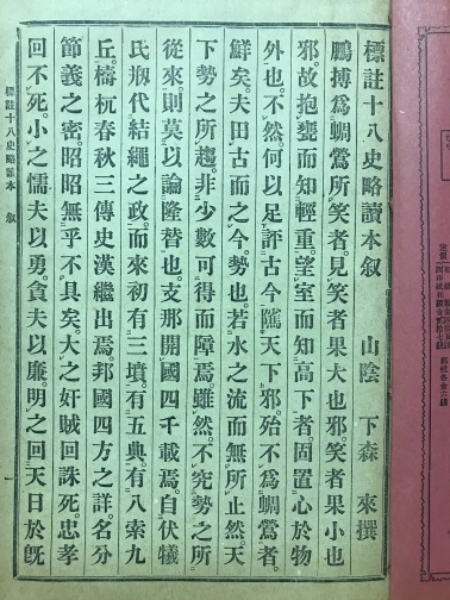 標註十八史略讀本叙　山陰　下森　來撰
鵬搏爲蜩鷽所笑者。見笑者果大也邪。笑者果小也
邪。故抱甕而知輕重。望室而知高下者。固置心於物
外也。不然。何以足評古今隲天下邪。殆不爲蜩鷽者。
鮮矣。夫田古而之今。勢也。若水之流而無所止然。天
下勢之所趨。非少數可得而障焉。雖然。不究勢之所
從來。則莫以論隆替也。支那開國四千載焉。自伏犧
氏刱代結繩之政。而來初有三墳。有五典。有八索九
丘。檮杌春秋三傳史漢繼出焉。邦國四方之詳。名分
節義之密。昭昭無乎不具矣。大之奸賊回誅死。忠孝
回不死。小之懦夫以勇。貪夫以廉。明之回天日於旣
標註十八史略讀本　叙　一